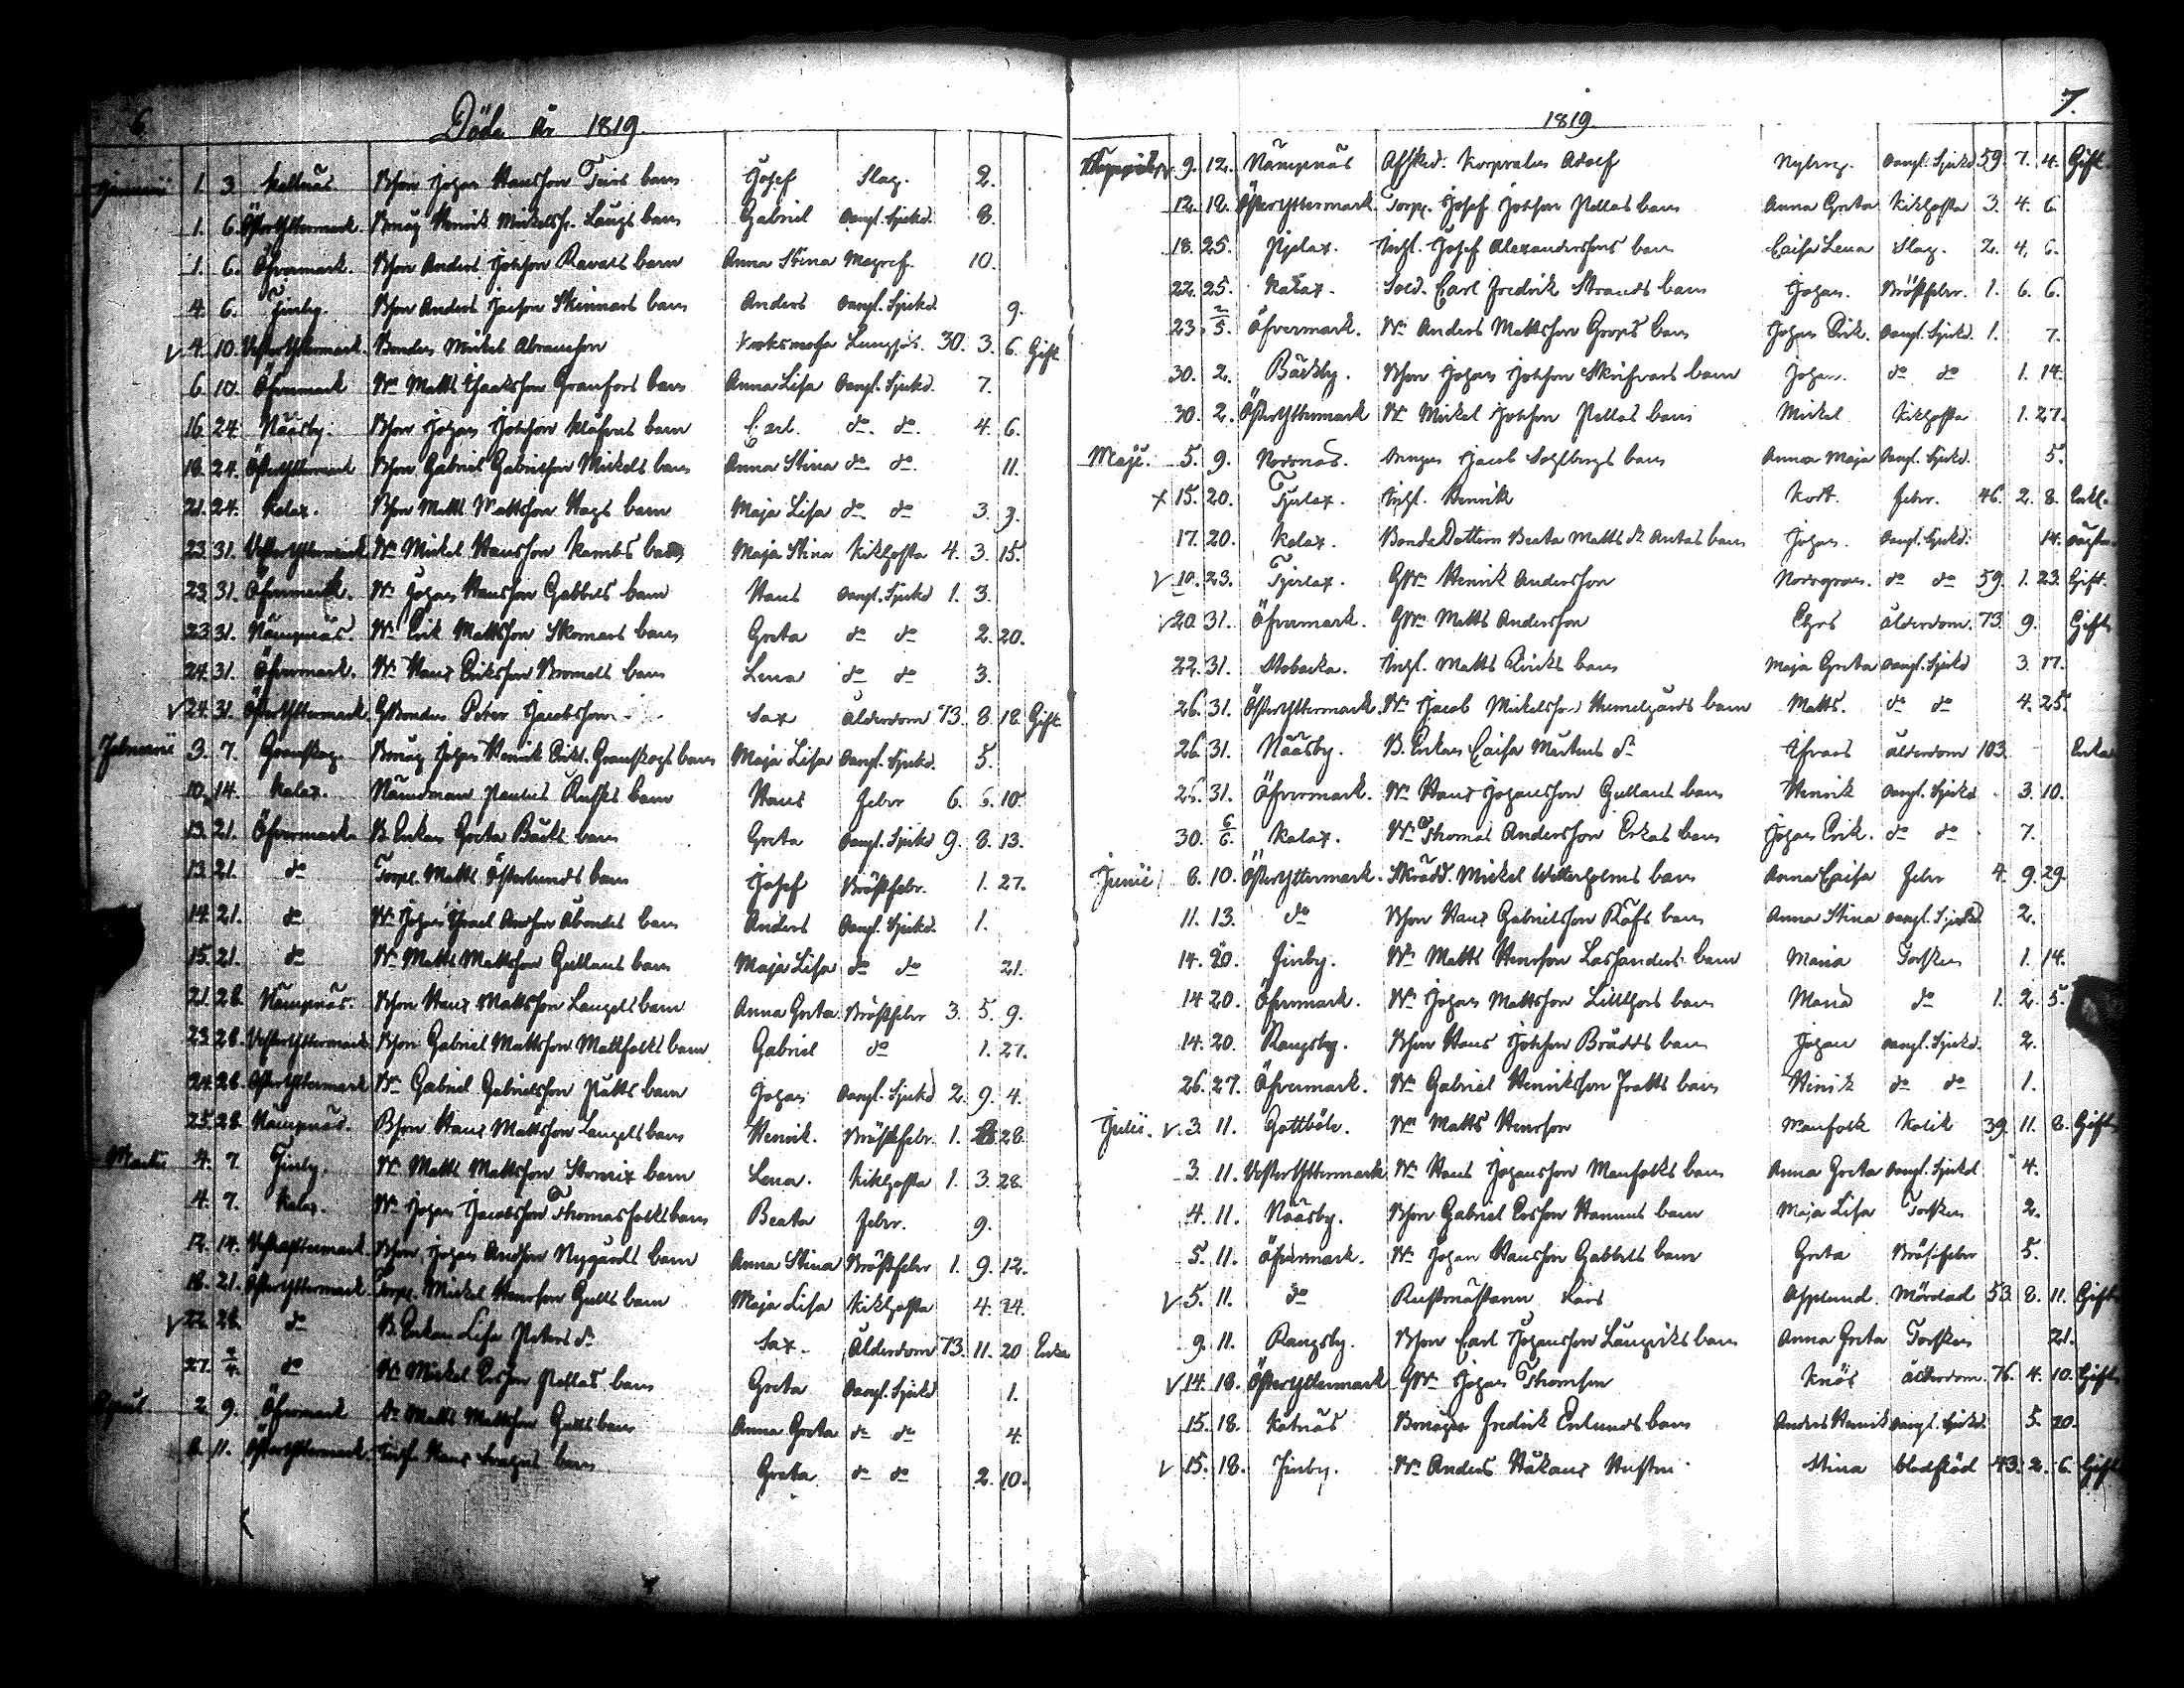 6.
Döde År 1819.
Januarii 1. 3. Skaltnäs. Bson Johan Hansson Teirs barn Josef Slag. 2.
1. 6. ÖsterYttermark. Henrik Mickelss. Långs barn Gabriel oangl. Sjukd. 8.
1. 6. Öfvermark. Bson Anders Johsson Ravals barn Anna Stina Magref. 10.
4. 6. Finby. Bson Anders Jacsson Skinnars barn Anders oangl. Sjukd. 9.
V 4. 10. VesterYttermark. Bonden Mickel Abramsson Lungsot. 30. 3. 6. Gift
6. 10. Öfvermark Nb. Matts Isaaksson Granfors barn Anna Lisa oangl. Sjukd. 7.
16. 24. Nääsby. Bson Johan Johsson Klåfvus barn Carl. do. do. 4. 6.
18. 24. ÖsterYttermark Bson Gabriel Gabrielsson Mickels barn Anna Stina do. do. 11.
21. 24. Kalax. Bson Matts Mattsson Hags barn Maja Lisa do do 3. 3.
23. 31. VesterYttermark Mickel Hansson Kambs barn Maja Stina Kikhosta 4. 3. 15.
23. 31. Öfvermark. Johan Hansson Gabbels barn Hans oangl. Sjukd 1. 3.
23. 31. Nämpnäs. Erik Mattsson Skomars barn Greta do do 2. 20.
24. 31. Öfvermark. Hans Eriksson Bromels barn Lena do do 3.
V 24. 31. ÖsterYttermark GBonden Peter Jacobsson Sax Ålderdom 73. 8. 18. Gift
Februarii 3. 7. Granskog. Johan Henrik Erikss. Granskogs barn Maja Lisa oangl. Sjukd. 5.
10. 14. Kalax. Nämdman Paulus Rusks barn Hans Feber 6. 6. 10.
13. 21. Öfvermark B. Enkan Greta Bäcks barn Greta oangl. Sjukd 9. 8. 13.
13. 21. do Torpr. Matts Österlunds barn Josef Bröstfebr. 1. 27.
14. 21. do Johan Israel Andsson Åbondes barn Anders oangl. Sjukd. 1.
15. 21. do Matts Mattsson Gullans barn Maja Lisa do do 21.
21. 28. Nämpnäs. Bson Hans Mattsson Langels barn Anna Greta Bröstfeber 3. 5. 9.
23. 28. VesterYttermark Bson Gabriel Mattsson Mattfolks barn Gabriel do 1. 27.
24. 28. ÖsterYttermark Gabriel Gabrielsson Pätts barn Johan oangl. Sjukd 2. 9. 4.
25. 28. Nämpnäs. Bson Hans Mattsson Langels barn Henrik. Bröstfebr. 1. 28.
Martii 4. 7. Finby. Matts Mattsson Stornix barn Lena. Kikhosta 1. 3. 28.
4. 7. Kalax. Johan Jacobsson Thomasfolks barn Beata Feber. 9.
12. 14. VesterYttermark Bson Johan Andsson Nygårds barn Anna Stina Bröstfebr 1. 9. 12.
18. 21. ÖsterYttermark Torpr. Mickel Henrsson Gulls barn Maja Lisa Kikhosta 4. 24.
V 22. 28. do B. Enkan Lisa Peters dr Sax. Ålderdom 73. 11. 20 Enka
27. 2/4. do Mickel Ersson Pellas barn Greta oangl. Sjukd 1.
April 2. 9. Öfvermark Matts Mattsson Gulls barn Anna Greta do do 4.
8. 11. ÖsterYttermark. Inh. Hans barn Greta do do 2. 10.
1819. 7.
9. 12. Nämpnäs Afsked. Korpralen Adolf Nyberg. oangl. Sjukd 59. 7. 4. Gift
12. 18. ÖsterYttermark Torpr. Josef Johsson Pellas barn Anna Greta Kikhosta 3. 4. 6.
18. 25. Pjelax. Inh. Josef Alexanderssons barn Caisa Lena Slag. 2. 4. 6.
22. 25. Kalax. Sold. Carl Fredrik Strands barn Johan. Bröstfebr. 1. 6. 6.
23. 2/5. Öfvermark. Anders Mattsson Grops barn Johan Erik. oangl. Sjukd. 1. 7.
30. 2. Bäckby. Bson Johan Johsson Skrifvars barn Johan. do do 1. 14.
30. 2. ÖsterYttermark Mickel Johsson Pellas barn Mickel Kikhosta 1. 27.
Maji. 5. 9. Norrnäs. Drengen Jacob Sahlbergs barn Anna Maja oangl. Sjukd. 5.
x 15. 20. Tjerlax. Inh. Henrik Kort. Feber. 46. 2. 8. Enkl.
17. 20. Kalax. BondeDottern Beata Matts dr Antas barn Johan. oangl. Sjukd. 14.
V 19. 23. Tjerlax. Henrik Andersson Norrgran. do do 59. 1. 23. Gift.
V 20. 31. Öfvermark. Matts Andersson Ehrs Ålderdom. 73. 9. Gift
22. 31. Stobacka. Inh. Matts Eriks barn Maja Greta oangl. Sjukd 3. 17.
26. 31. ÖsterYttermark. Jacob Mickelsson Hemelgårds barn Matts. do do 4. 25.
26. 31. Nääsby. B. Enkan Caisa Mårtens dr Ifvars Ålderdom 103. Enka
26. 31. Öfvermark. Hans Johansson Gullans barn Henrik oangl. Sjukd 3. 10.
30. 6/6. Kalax. Thomas Andersson Erkas barn Johan Erik. do do 7.
Junii 8. 10. ÖsterYttermark. Skrädd. Mickel Wetterholms barn Anna Caisa Feber 4. 9. 29.
11. 13. do Bson Hans Gabrielsson Råfs barn Anna Stina oangl. Sjukd 2.
14. 20. Finby. Matts Henrsson Lassanders barn Maria Torsken 1. 14.
14. 20. Öfvermark. Johan Mattsson Lillthors barn Maria do 1. 2. 5.
14. 20. Rangsby. Bson Hans Johsson Brädds barn Johan oangl. Sjukd. 2.
26. 27. Öfvermark. Gabriel Henriksson Fratts barn Henrik do do 1.
Julii. V 3. 11. Gottböle. Matts Henrsson Manfolk Kolik 39. 11. 8. Gift
3. 11. VesterYttermark Hans Johansson Manfolks barn Anna Greta oangl. Sjukd. 4.
4. 11. Nääsby. Bson Gabriel Ersson Hannus barn Maja Lisa Torsken 2.
5. 11. Öfvermark. Johan Hansson Gabbels barn Greta Bröstfeber 5.
V 5. 11. do Rustmästaren Lars Asplund. Mördad 53. 8. 11. Gift
9. 11. Rangsby. Bson Carl Johansson Långviks barn Anna Greta Torsken 21.
V 14. 18. ÖsterYttermark Johan Thomsson Knös Ålderdom. 76. 4. 10. Gift
15. 18. Kåtnäs Fredrik Enlunds barn Anders Henrik oangl. Sjukd. 5. 20.
V 15. 18. Finby. Anders Håkans Hustru Stina blodflöd 43. 2. 6. Gift